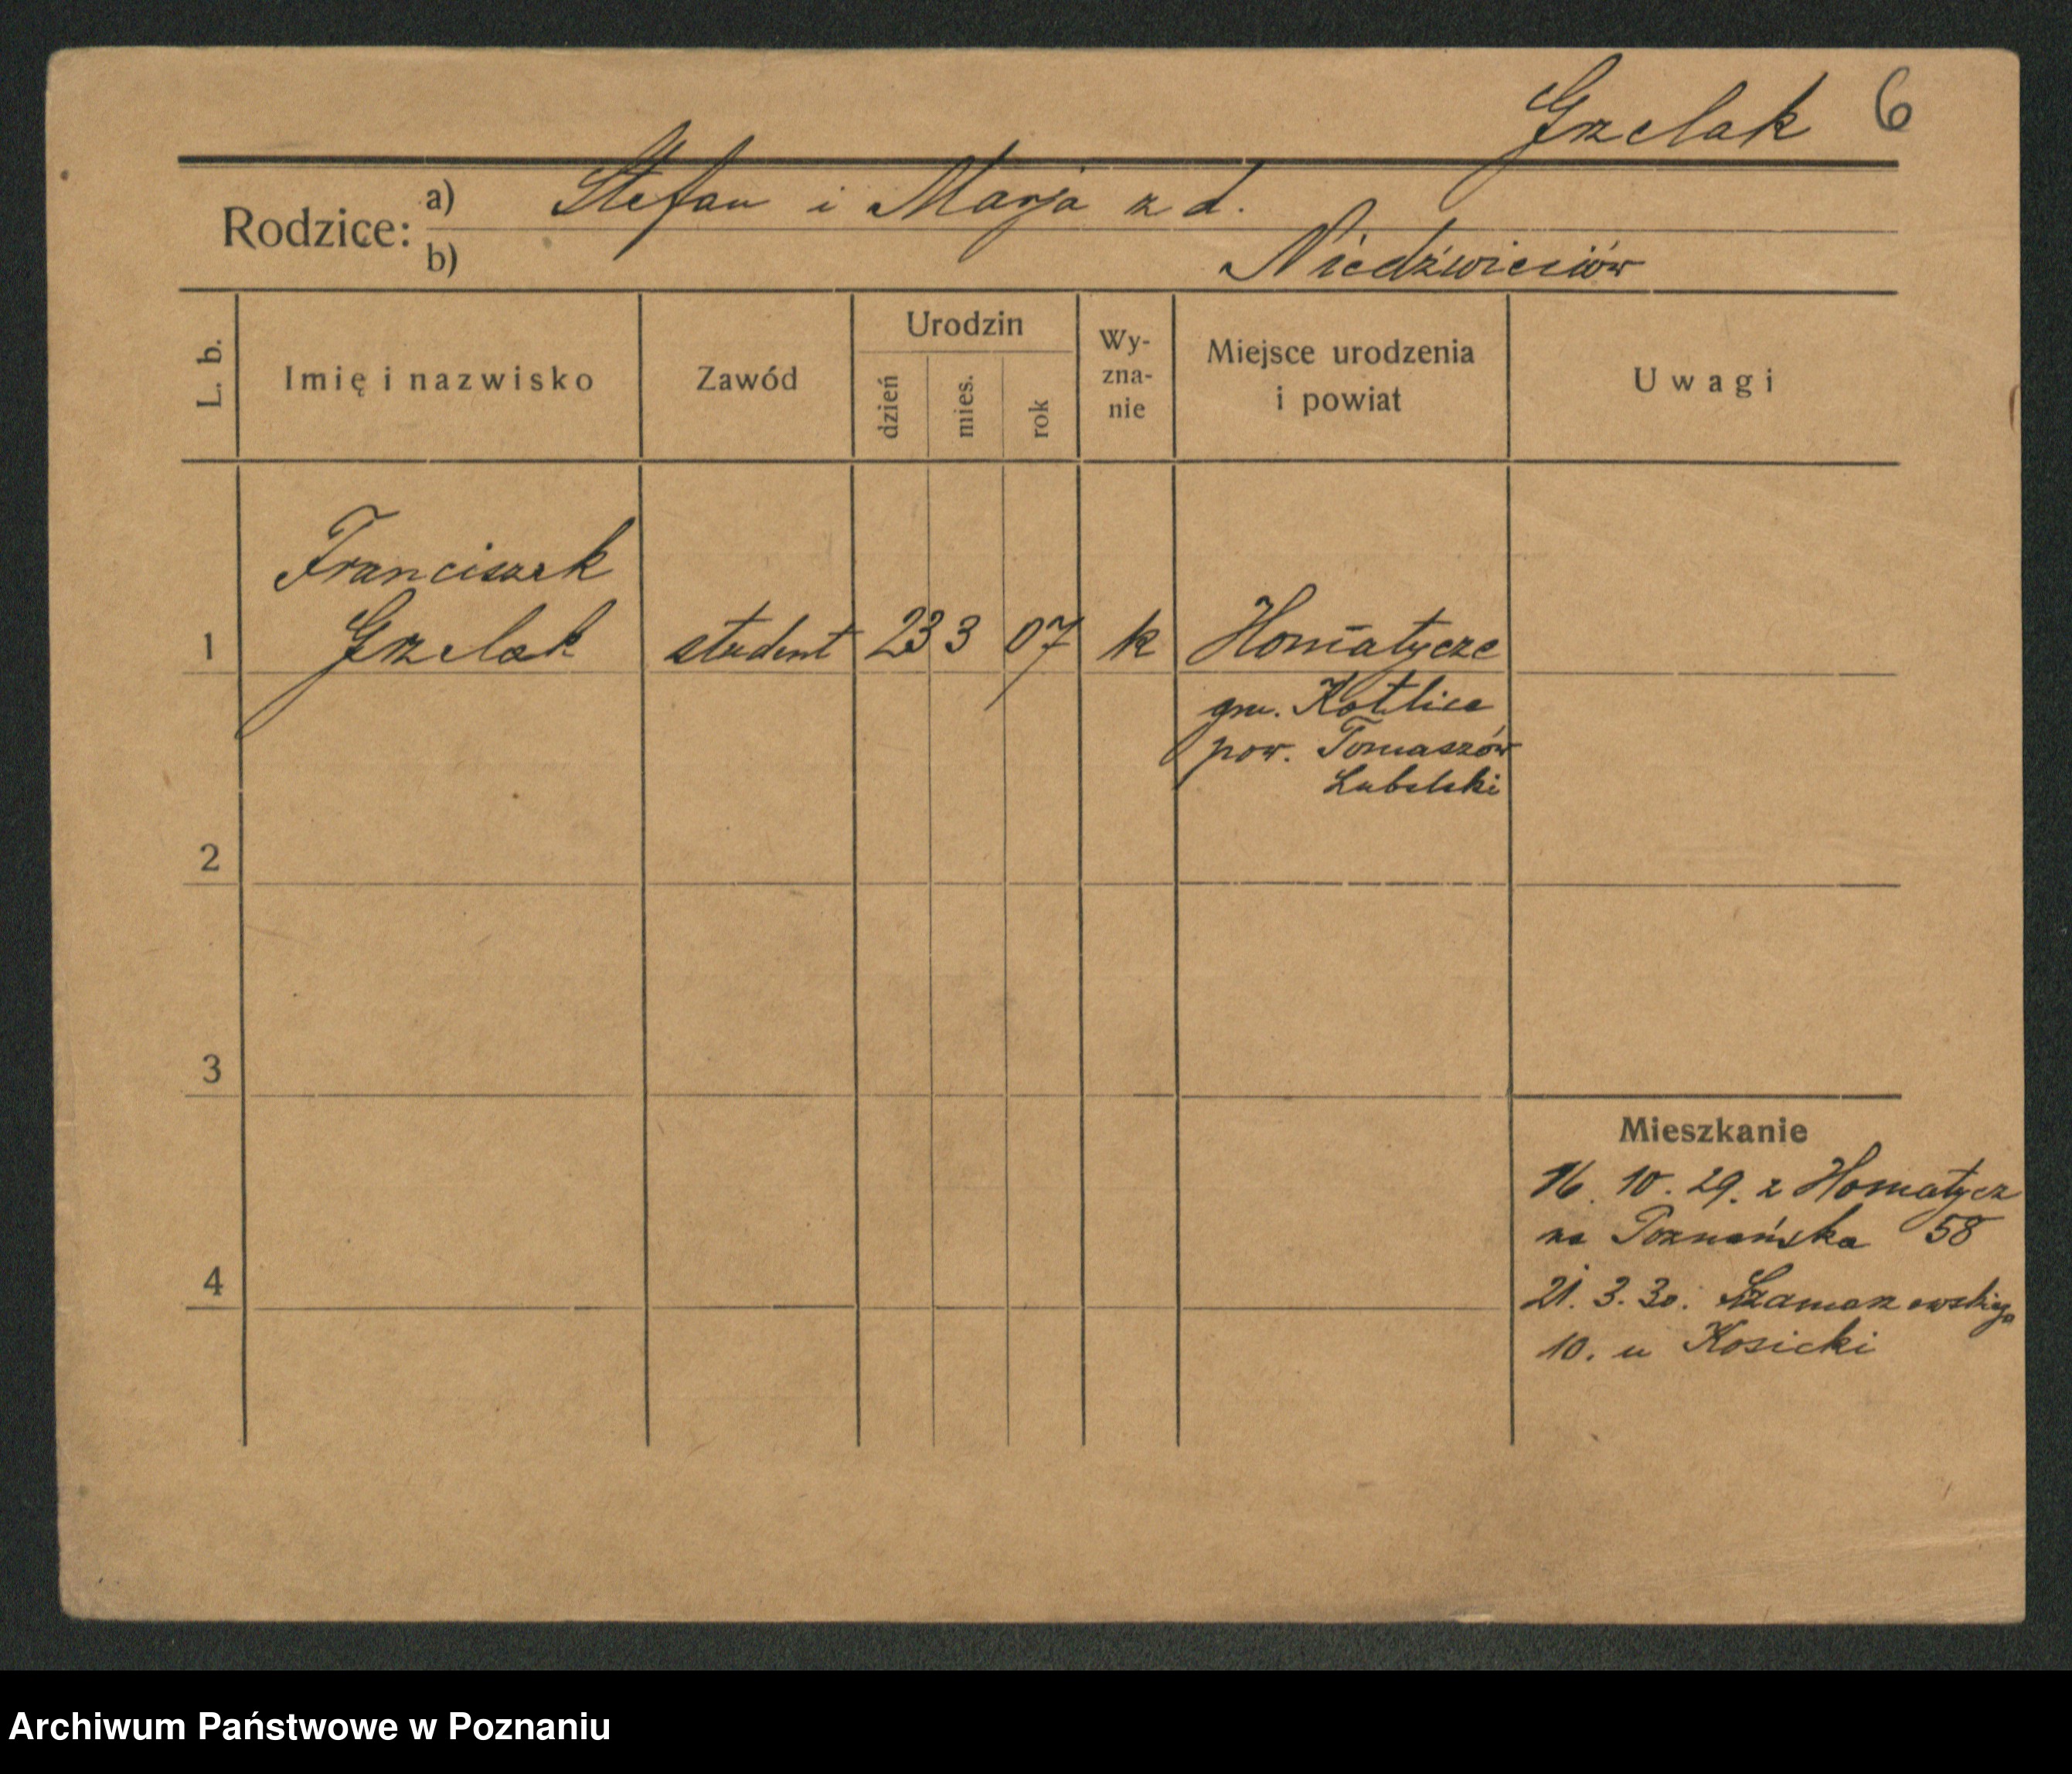 Grzelak 6
Rodzice:
a) Stefan i Marja z d.
b) Niedźwieciów
L. b.
Imię i nazwisko
Zawód
Urodzin
dzień
mies.
rok
Wy-
zna-
nie
Miejsce urodzenia
i powiat
Uwagi
Franciszek
1 Grzelak student 23 3 07 k Homatycze
gm. Kotlice
pow. Tomaszów
Lubelski
2
3
4
Mieszkanie
16. 10. 29. z Homatycz
na Poznańska 58
21. 3. 30. Szamarzewskiego
10. u Kosicki
Archiwum Państwowe w Poznaniu